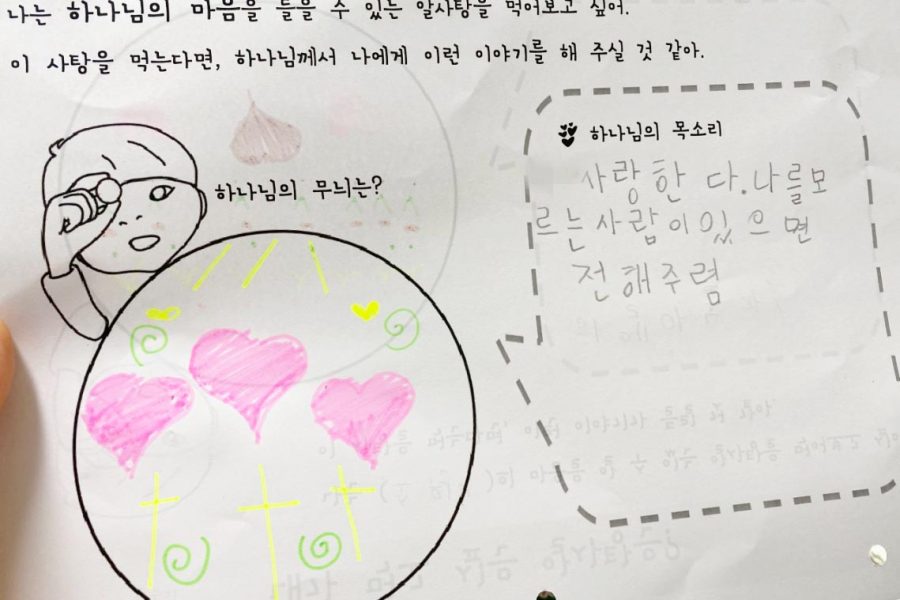 나는 하나님의 마음을 들을 수 있는 알사탕을 먹어보고 싶어.
이 사탕을 먹는다면, 하나님께서 나에게 이런 이야기를 해 주실 것 같아.
하나님의 무늬는?
하나님의 목소리
사랑한다.나를모
르는사람이있으면
전해주렴